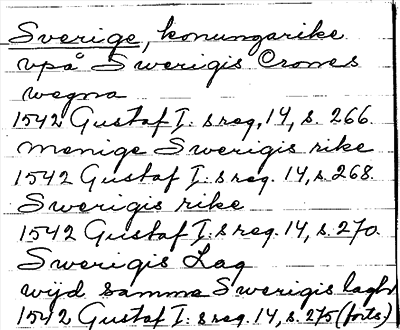 Sverige, konungarike
vpå Swerigis Crones
wegna
1542 Gustaf I:s reg. 14, s. 266.
menige Swerigis rike
1542 Gustaf I:s reg. 14, s. 268.
Swerigis rike
1542 Gustaf I:s reg. 14, s. 270.
Swerigis Lag
wijd samma Swerigis lagh
1542 Gustaf I:s reg. 14, s. 275 (forts.)